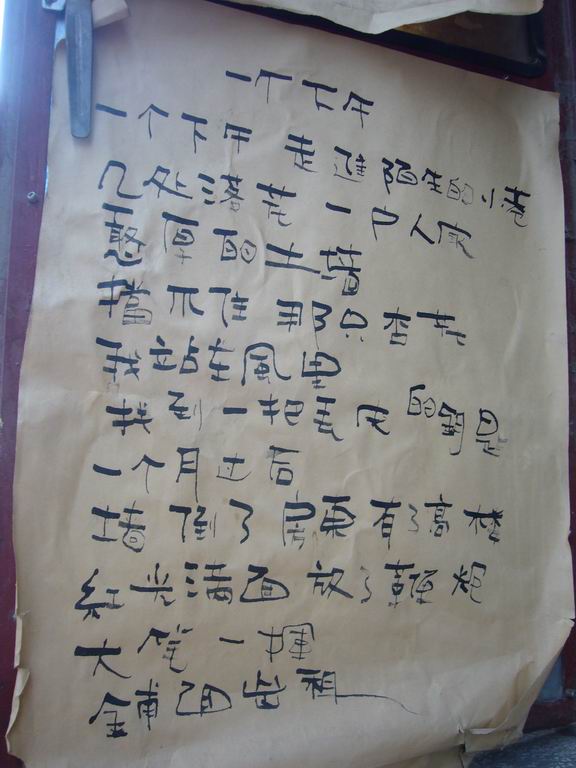 一个下午
一个下午 走進陌生的小巷
几处落花 一户人家
憨厚的土墙
擋不住 那只杏花
我站在風里
找到一把丟失的鑰匙
一个月过后
墙倒了 房東有了高楼
紅光满面 放了鞭炮
大笔一揮
鋪面出租